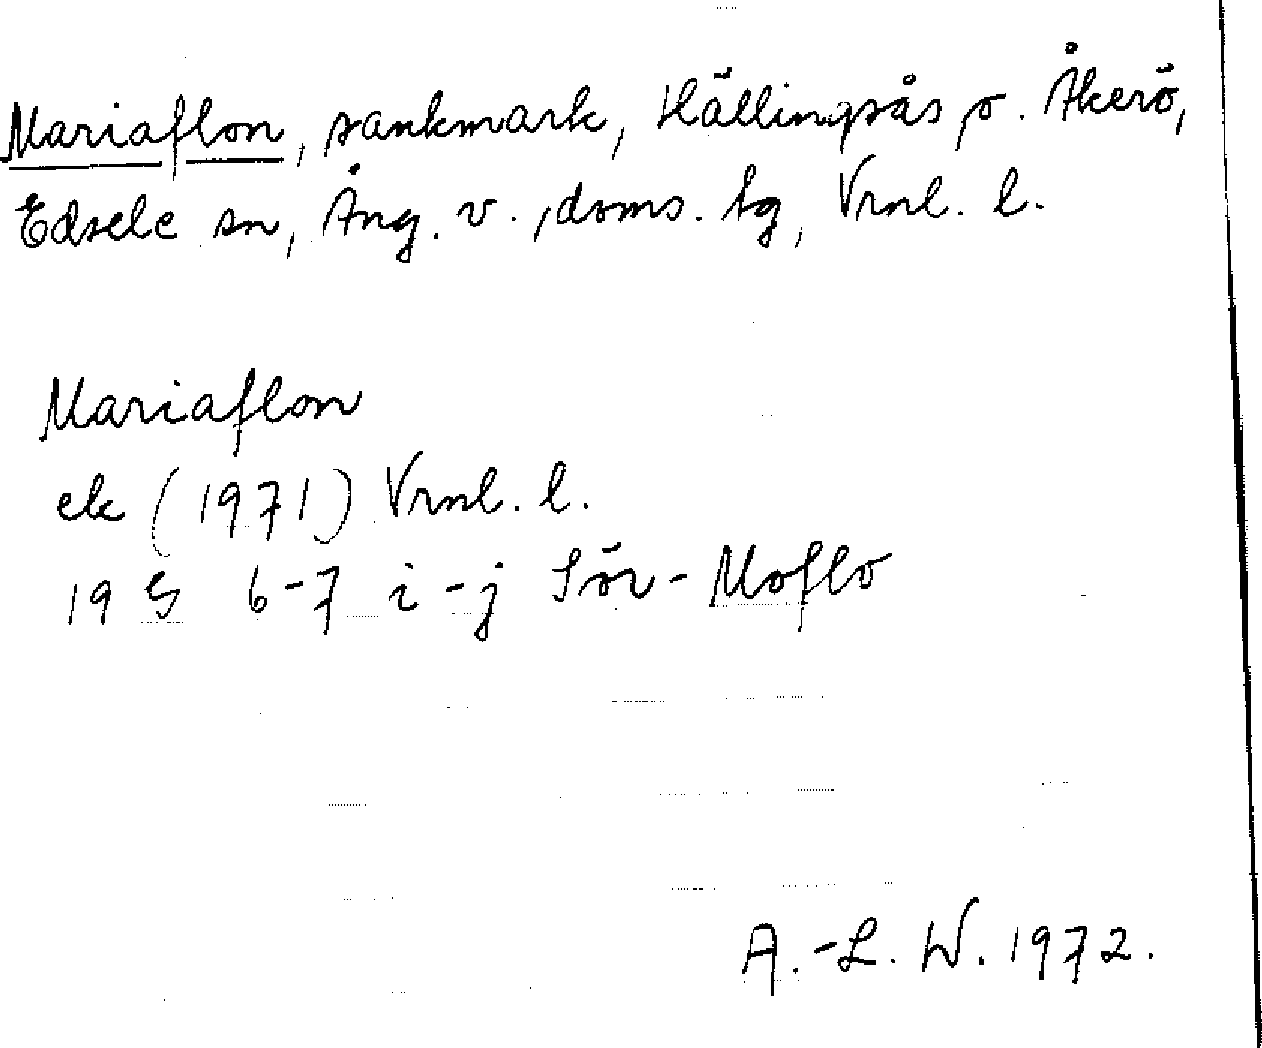 Mariaflon, sankmark, Hällingsås o. Åkerö,
Edsele sn, Ång. v., doms. tg, Vrnl. l.
Mariaflon
ek (1971) Vrnl. l.
19 G 6-7 i-j Sör-Moflo
A.-L. W. 1972.